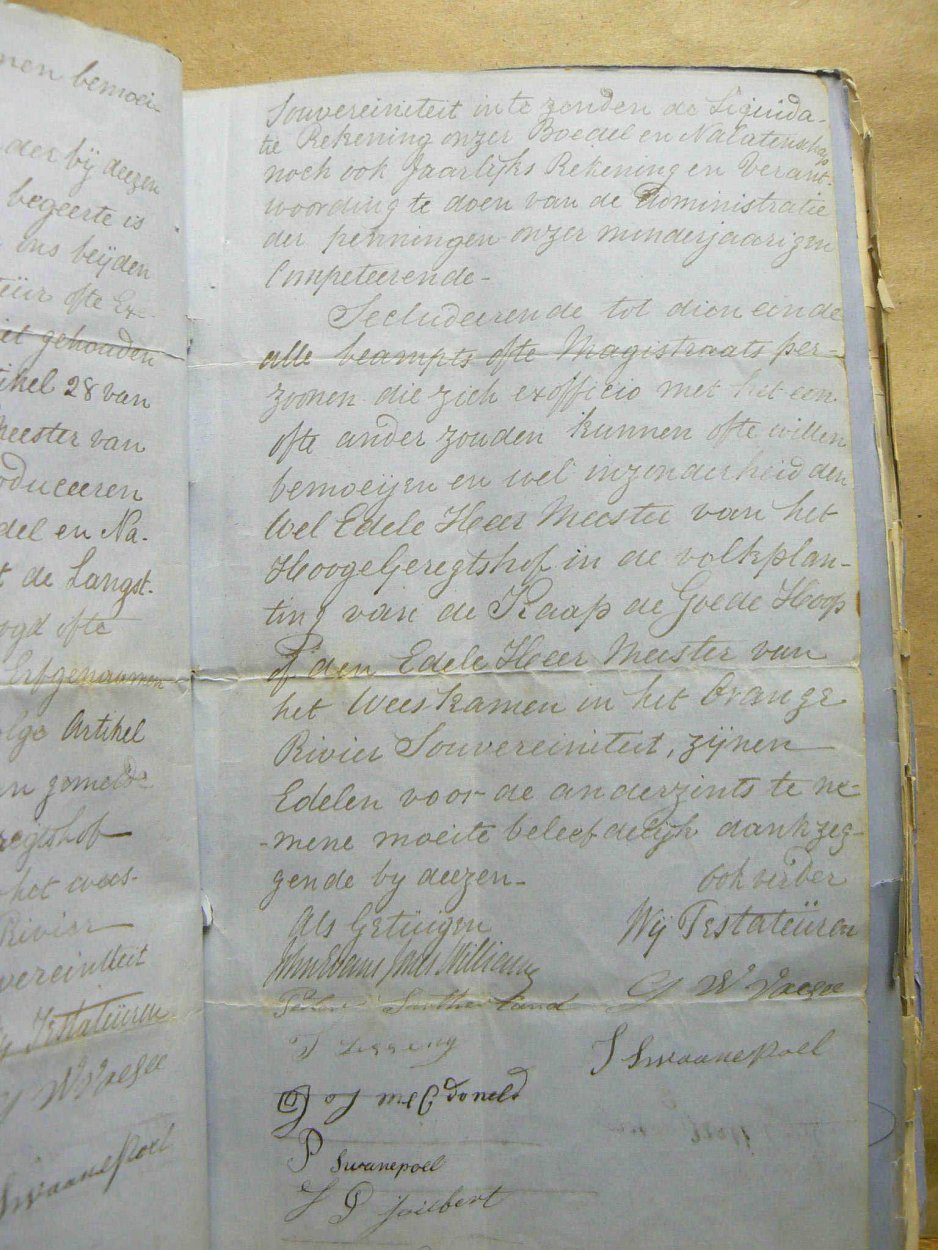 nen bemoei-
der bij deezen
begeerte is
ons beijden
teür ofte Exe-
iet gehouden
tikel 28 van
Meester van
oduceeren
del en Na-
t de Langst-
ogd ofte
Erfgenaamen
olge Artikel
an gemelde
regtshof
het wees-
Rivier
vereiniteit
Testateüren
J W Vosgee
Swaanepoel
Souvereiniteit in te zenden de Liquida-
tie Rekening onzer Boedel en Nalatenschap
noch ook Jaarlijks Rekening en Verant-
woording te doen van de Administratie
der penningen onzer minderjaarigen
Competeerende-
Secludeerende tot dien einde
alle beampts ofte Magistraats per-
zoonen die zich exofficio met het een
ofte ander zouden kunnen ofte willen
bemoeijen en wel inzonderheid den
Wel Edele Heer Meester van het
Hooge Geregtshof in de volkplan-
ting van de Kaap de Goede Hoop
of den Edele Heer Meester van
het Wees Kamen in het Orange
Rivier Souvereiniteit, zijnen
Edelen voor de anderzints te ne-
-mene moeite beleefdelijk dankzeg-
gende by deezen-
ook verder
Als Getüigen
Wij Testateüren
John Evans Williams
Sutherland
J Swaanepoel
J McDoneld
P Swanepoel
J P Joubert